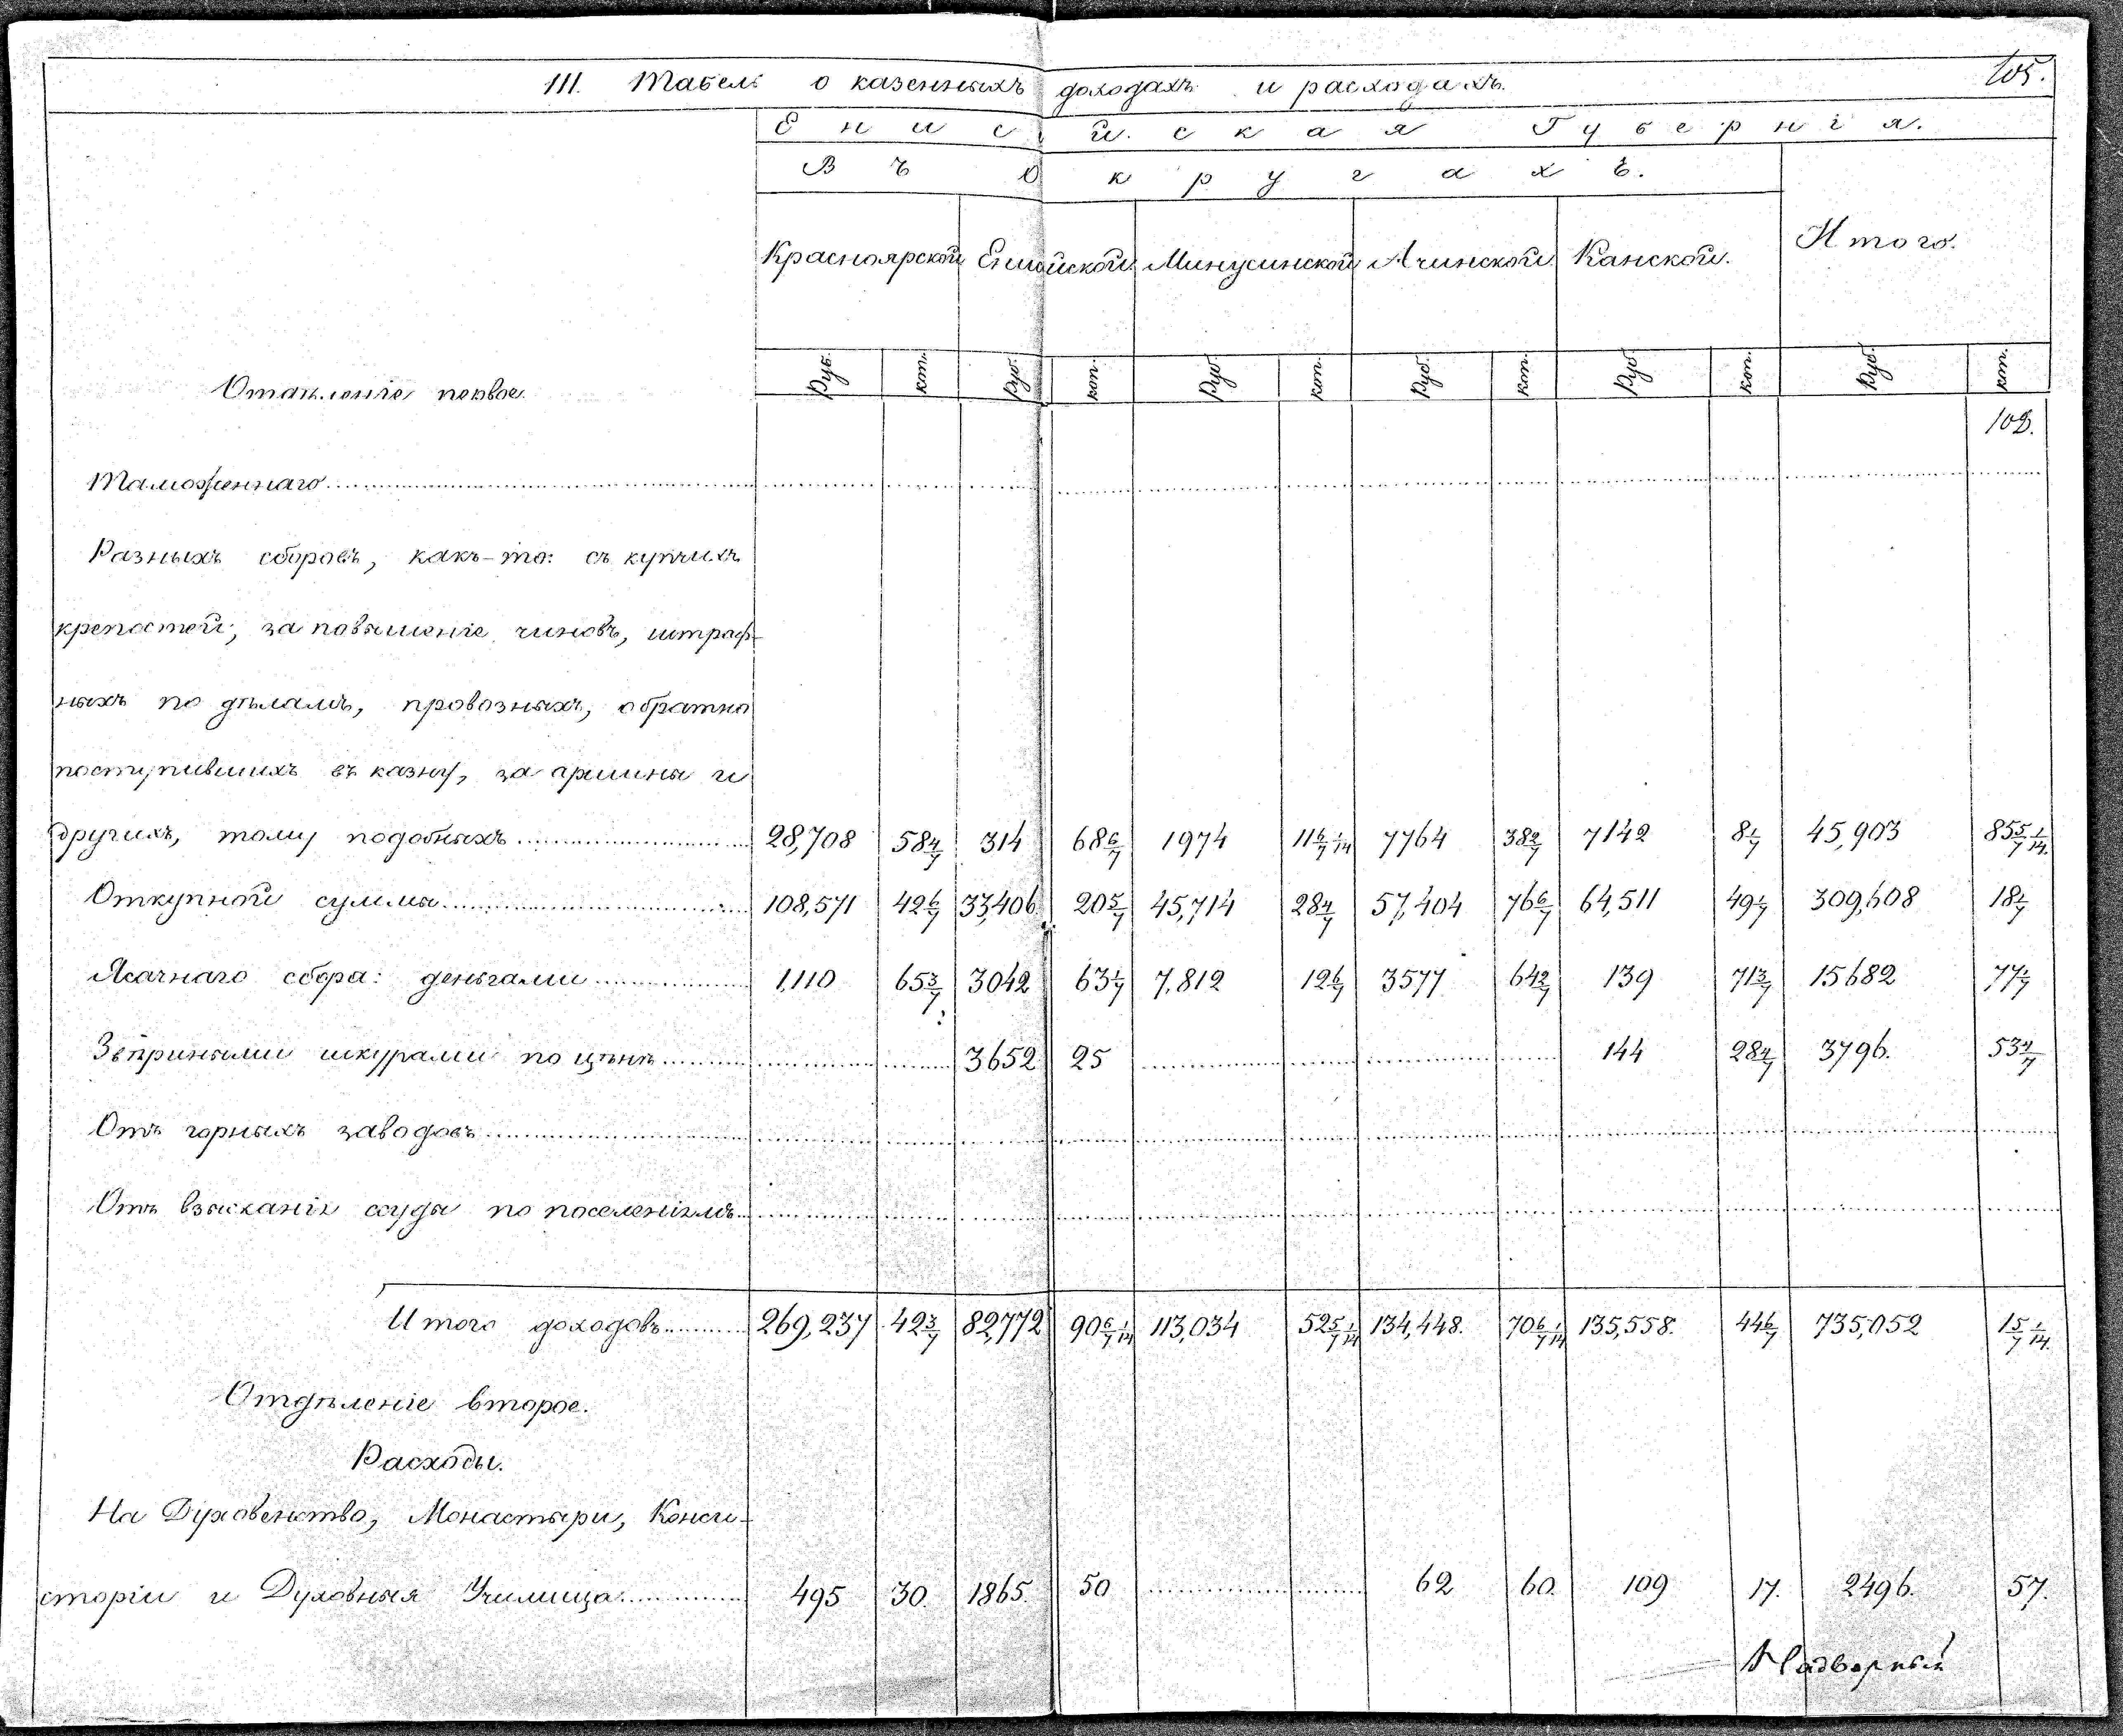 III. Табель о казенныхъ доходахъ и расходахъ. 105.
Енисейская Губернія.
Въ Округахъ.
Красноярской Енисейской Минусинской Ачинской Канской. Итого.
Руб. коп. Руб. коп. Руб. коп. Руб. коп. Руб. коп. Руб. коп.
Отдѣленіе первое.
102.
Таможеннаго
Разныхъ сборовъ, какъ-то: съ купчихъ
крепостей, за повышеніе чиновъ, штраф-
ныхъ по дѣламъ, провозныхъ, обратно
поступившихъ въ казну, за аршины и
другихъ, тому подобныхъ 28,708 58 4/7 314 68 6/7 1974 11 6/7 1/14 7764 38 2/7 7142 8 1/7 45,903 85 5/7 1/14.
Откупной суммы 108,571 42 6/7 33,406 20 5/7 45,714 28 4/7 57,404 76 6/7 64,511 49 1/7 309,608 18 1/7
Ясачнаго сбора: деньгами 1,110 65 3/7 3042 63 1/7 7,812 12 6/7 3577 64 2/7 139 71 3/7 15682 77 1/7
Звѣриными шкурами по цѣнѣ 3652 25 144 28 4/7 3796. 53 4/7
Отъ горныхъ заводовъ
Отъ взысканія ссуды по поселеніямъ
Итого доходовъ 269,237 42 3/7 82,772 90 6/7 1/14 113,034 52 5/7 1/14 134,448. 70 6/7 1/14 135,558. 44 6/7 735,052 1 5/7 1/14.
Отдѣленіе второе.
Расходы.
На Духовенство, Монастыри, Конси-
сторіи и Духовныя Училища 495 30. 1865. 50 62 60. 109 17. 2496. 57.
Надворный